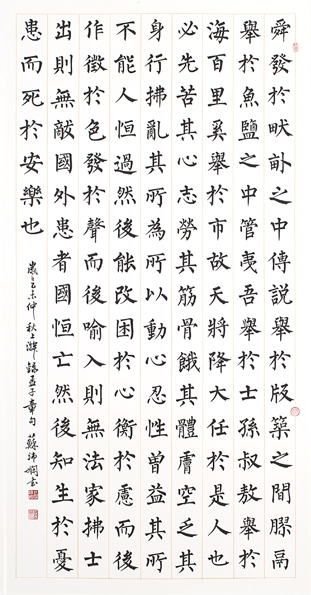 舜發於畎畝之中傅説舉於版築之間膠鬲
舉於魚鹽之中管夷吾舉於士孫叔敖舉於
海百里奚舉於市故天將降大任於是人也
必先苦其心志勞其筋骨餓其體膚空乏其
身行拂亂其所為所以動心忍性曾益其所
不能人恒過然後能改困於心衡於慮而後
作徵於色發於聲而後喻入則無法家拂士
出則無敵國外患者國恒亡然後知生於憂
患而死於安樂也
歲乙未仲秋上澣錄孟子章句